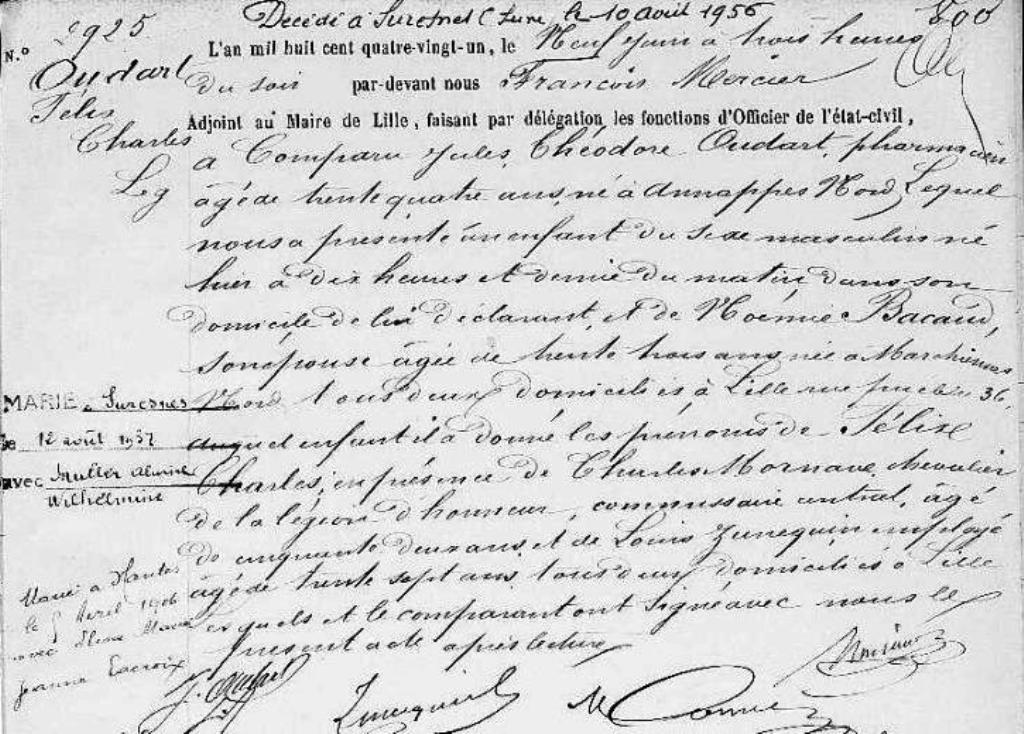 Décédé à Suresnes (Seine) le 10 avril 1956
N.° 2925
Oudart
Félix
Charles
Lég
L'an mil huit cent quatre-vingt-un, le Neuf Juin à trois heures
du soir par-devant nous François Mercier
Adjoint au Maire de Lille, faisant par délégation les fonctions d'Officier de l'état-civil,
a Comparu Jules, Théodore Oudart, pharmacien
âgé de trente quatre ans né à Annappes Nord Lequel
nous a présenté un enfant du sexe masculin né
hier à dix heures et demie du matin dans son
domicile de lui déclarant, et de Noémie Bacaud,
son épouse âgée de trente trois ans née à Marchiennes
Nord tous deux domiciliés à Lille rue 36,
auquel enfant il a donné les prénoms de Félix
Charles, en présence de Charles Mornave chevalier
de la légion d'honneur, commissaire central, âgé
de cinquante deux ans, et de Louis Zunequin employé
âgé de trente sept ans tous deux domiciliés à Lille
lesquels et le comparant ont signé avec nous le
présent acte après lecture
MARIÉ à Suresnes
le 12 août 1937
avec Muller
Wilhelmine
Marié à Nantes
le 5 Avril 1906
avec Marie
Jeanne Lacroix
J. Oudart
Zunequin
Mercier